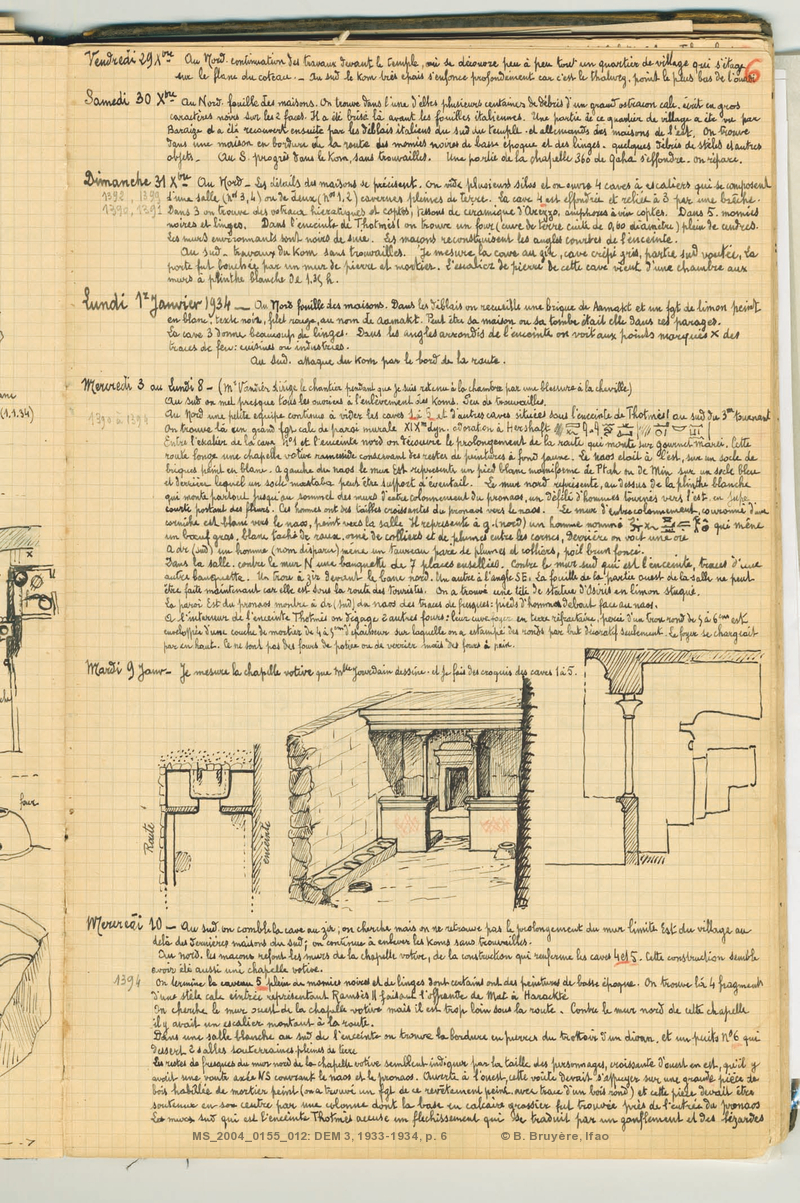 6
Vendredi 29 Xbre Au Nord. continuation des travaux devant le temple, où se découvre peu à peu tout un quartier de village qui s'étage
sur le flanc du coteau. – Au sud le kom très épais s'enfonce profondément car c'est le thalweg, point le plus bas de l'ouadi
Samedi 30 Xbre Au Nord. fouille des maisons. On trouve dans l'une d'elles plusieurs centaines de débris d'un grand ostracon calc. écrit en gros
caractères noirs sur les 2 faces. Il a été brisé là avant les fouilles italiennes. Une partie de ce quartier de village a été vu par
Baraize et a été recouvert ensuite par les déblais italiens du sud du temple et allemands des maisons de l'est. On trouve
dans une maison en bordure de la route des momies noires de basse époque et des linges. quelques débris de stèles et autres
objets – Au S. progrès dans le kom, sans trouvailles. Une partie de la chapelle 360 de Qaha s'effondre. on répare.
Dimanche 31 Xbre Au Nord – Les détails des maisons se précisent. On vide plusieurs silos et on ouvre 4 caves à escaliers qui se composent
1392, 1393 d'une salle (Nos 3, 4) ou de deux (Nos 1, 2) cavernes pleines de terre. La cave 4 est effondrée et reliée à 3 par une brèche.
1390, 1391 Dans 3 on trouve des ostraca hiératiques et coptes, tessons de céramique d'Arezzo, amphores à vin coptes. Dans 5. momies
noires et linges. Dans l'enceinte de Thotmès I on trouve un four (cuve de terre cuite de 0,60 diamètre) plein de cendres.
Les murs environnants sont noirs de suie. Les maçons reconstituisent les angles courbes de l'enceinte.
Au sud – travaux du kom sans trouvailles. Je mesure la cave au zir, cave crépi gris, partie sud voutée, la
porte fut bouchée par un mur de pierre et mortier. L'escalier de pierre de cette cave vient d'une chambre aux
murs à plinthe blanche de 1.25 h.
Lundi 1er Janvier 1934 – Au Nord fouille des maisons. Dans les déblais on recueille une brique de Aamakt et un fgt de limon peint
en blanc, texte noir, filet rouge, au nom de Aamakt. Peut être sa maison ou sa tombe était elle dans ces parages.
La cave 3 donne beaucoup de linges. Dans les angles arrondis de l'enceinte on voit aux points marqués x des
traces de feu: cuisines ou industries.
Au sud. attaque du kom par le bord de la route.
Mercredi 3 au Lundi 8 – (Mr Vandier dirige le chantier pendant que je suis retenu à la chambre par une blessure à la cheville)
Au sud on met presque tous les ouvriers à l'enlèvement des koms. Peu de trouvailles.
1390 à 1394 Au Nord une petite équipe continue à vider les caves 1 à 5 et d'autres caves situées sous l'enceinte de Thotmès I au sud du 3me tournant.
On trouve là un grand fgt calc de paroi murale XIXe dyn. adoration à Hershaft
Entre l'escalier de la cave No 1 et l'enceinte nord on découvre le prolongement de la route qui monte sur Gournet marei. Cette
route longe une chapelle votive ramesside conservant des restes de peintures à fond jaune. Le naos était à l'est, sur un socle de
briques peint en blanc. A gauche du naos le mur Est représente un pied blanc momiforme de Ptah ou de Min sur un socle bleu
et derrière lequel un socle mastaba peut être support d'éventail. Le mur nord représente, au dessus de la plinthe blanche
qui monte partout jusqu'au sommet des murs d'entrecolonnement du pronaos, un défilé d'hommes tournés vers l'est, en jupe
courte portant des fleurs. Ces hommes ont des tailles croissantes du pronaos vers le naos. Le mur d'entrecolonnement, couronné d'une
corniche est blanc vers le naos, peint vers la salle. Il représente à g. (nord) un homme nommé qui mène
un bœuf gras, blanc taché de roux, orné de colliers et de plumes entre les cornes, Derrière on voit une oie
A dr (sud) un homme (nom disparu) mène un taureau paré de plumes et colliers, poil brun foncé.
Dans la salle. contre le mur N une banquette de 7 places ensellées. Contre le mur sud qui est l'enceinte, traces d'une
autre banquette. Un trou à zir devant le banc nord. Un autre à l'angle SE. La fouille de la partie ouest de la salle ne peut
être faite maintenant car elle est sous la route des Touristes. On a trouvé une tête de statue d'Osiris en limon stuqué.
La paroi Est du pronaos montre à dr (sud) du naos des traces de fresques: pieds d'hommes debout face au naos.
A l'intérieur de l'enceinte Thotmès on dégage 2 autres fours: leur cuve foyer en terre réfractaire, percé d'un trou rond de 5 à 6cm est
enveloppé d'une couche de mortier de 4 à 5cm d'épaisseur sur laquelle on a estampé des ronds par but décoratif seulement. Le foyer se chargeait
par en haut. Ce ne sont pas des fours de potier ou de verrier mais des fours à pain.
Mardi 9 Janv – Je mesure la chapelle votive que Mlle Jourdain dessine. et je fais des croquis des caves 1 à 5.
Route
enceinte
Mercredi 10 – Au sud. on comble la cave au zir; on cherche mais on ne retrouve pas le prolongement du mur limite Est du village au
delà des dernières maisons du sud; on continue à enlever les koms sans trouvailles.
Au nord. les maçons refont les murs de la chapelle votive, de la construction qui renferme les caves 4 et 5. Cette construction semble
avoir été aussi une chapelle votive.
1394 On termine le caveau 5 plein de momies noires et de linges dont certains ont des peintures de basse époque. On trouve là 4 fragments
d'une stèle calc cintrée représentant Ramsès II faisant l'offrande de Mat à Harackté
On cherche le mur ouest de la chapelle votive mais il est trop loin sous la route. Contre le mur nord de cette chapelle
il y avait un escalier montant à la route.
Dans une salle blanche au sud de l'enceinte on trouve la bordure en pierres du trottoir d'un divan, et un puits No 6 qui
dessert 2 salles souterraines pleines de terre
Les restes de fresques du mur nord de la chapelle votive semblent indiquer par la taille des personnages, croissante d'ouest en est, qu'il y
avait une voute axée NS couvrant le naos et le pronaos. Ouverte à l'ouest, cette voûte devait s'appuyer sur une grande pièce de
bois habillée de mortier peint (on a trouvé un fgt de ce revêtement peint avec trace d'un bois rond) et cette pièce devait être
soutenue en son centre par une colonne dont la base en calcaire grossier fut trouvée près de l'entrée du pronaos
Le mur sud qui est l'enceinte Thotmès accuse un fléchissement qui se traduit par un gonflement et des lézardes
(1.1.34)
four
MS_2004_0155_012: DEM 3, 1933-1934, p. 6 © B. Bruyère, Ifao